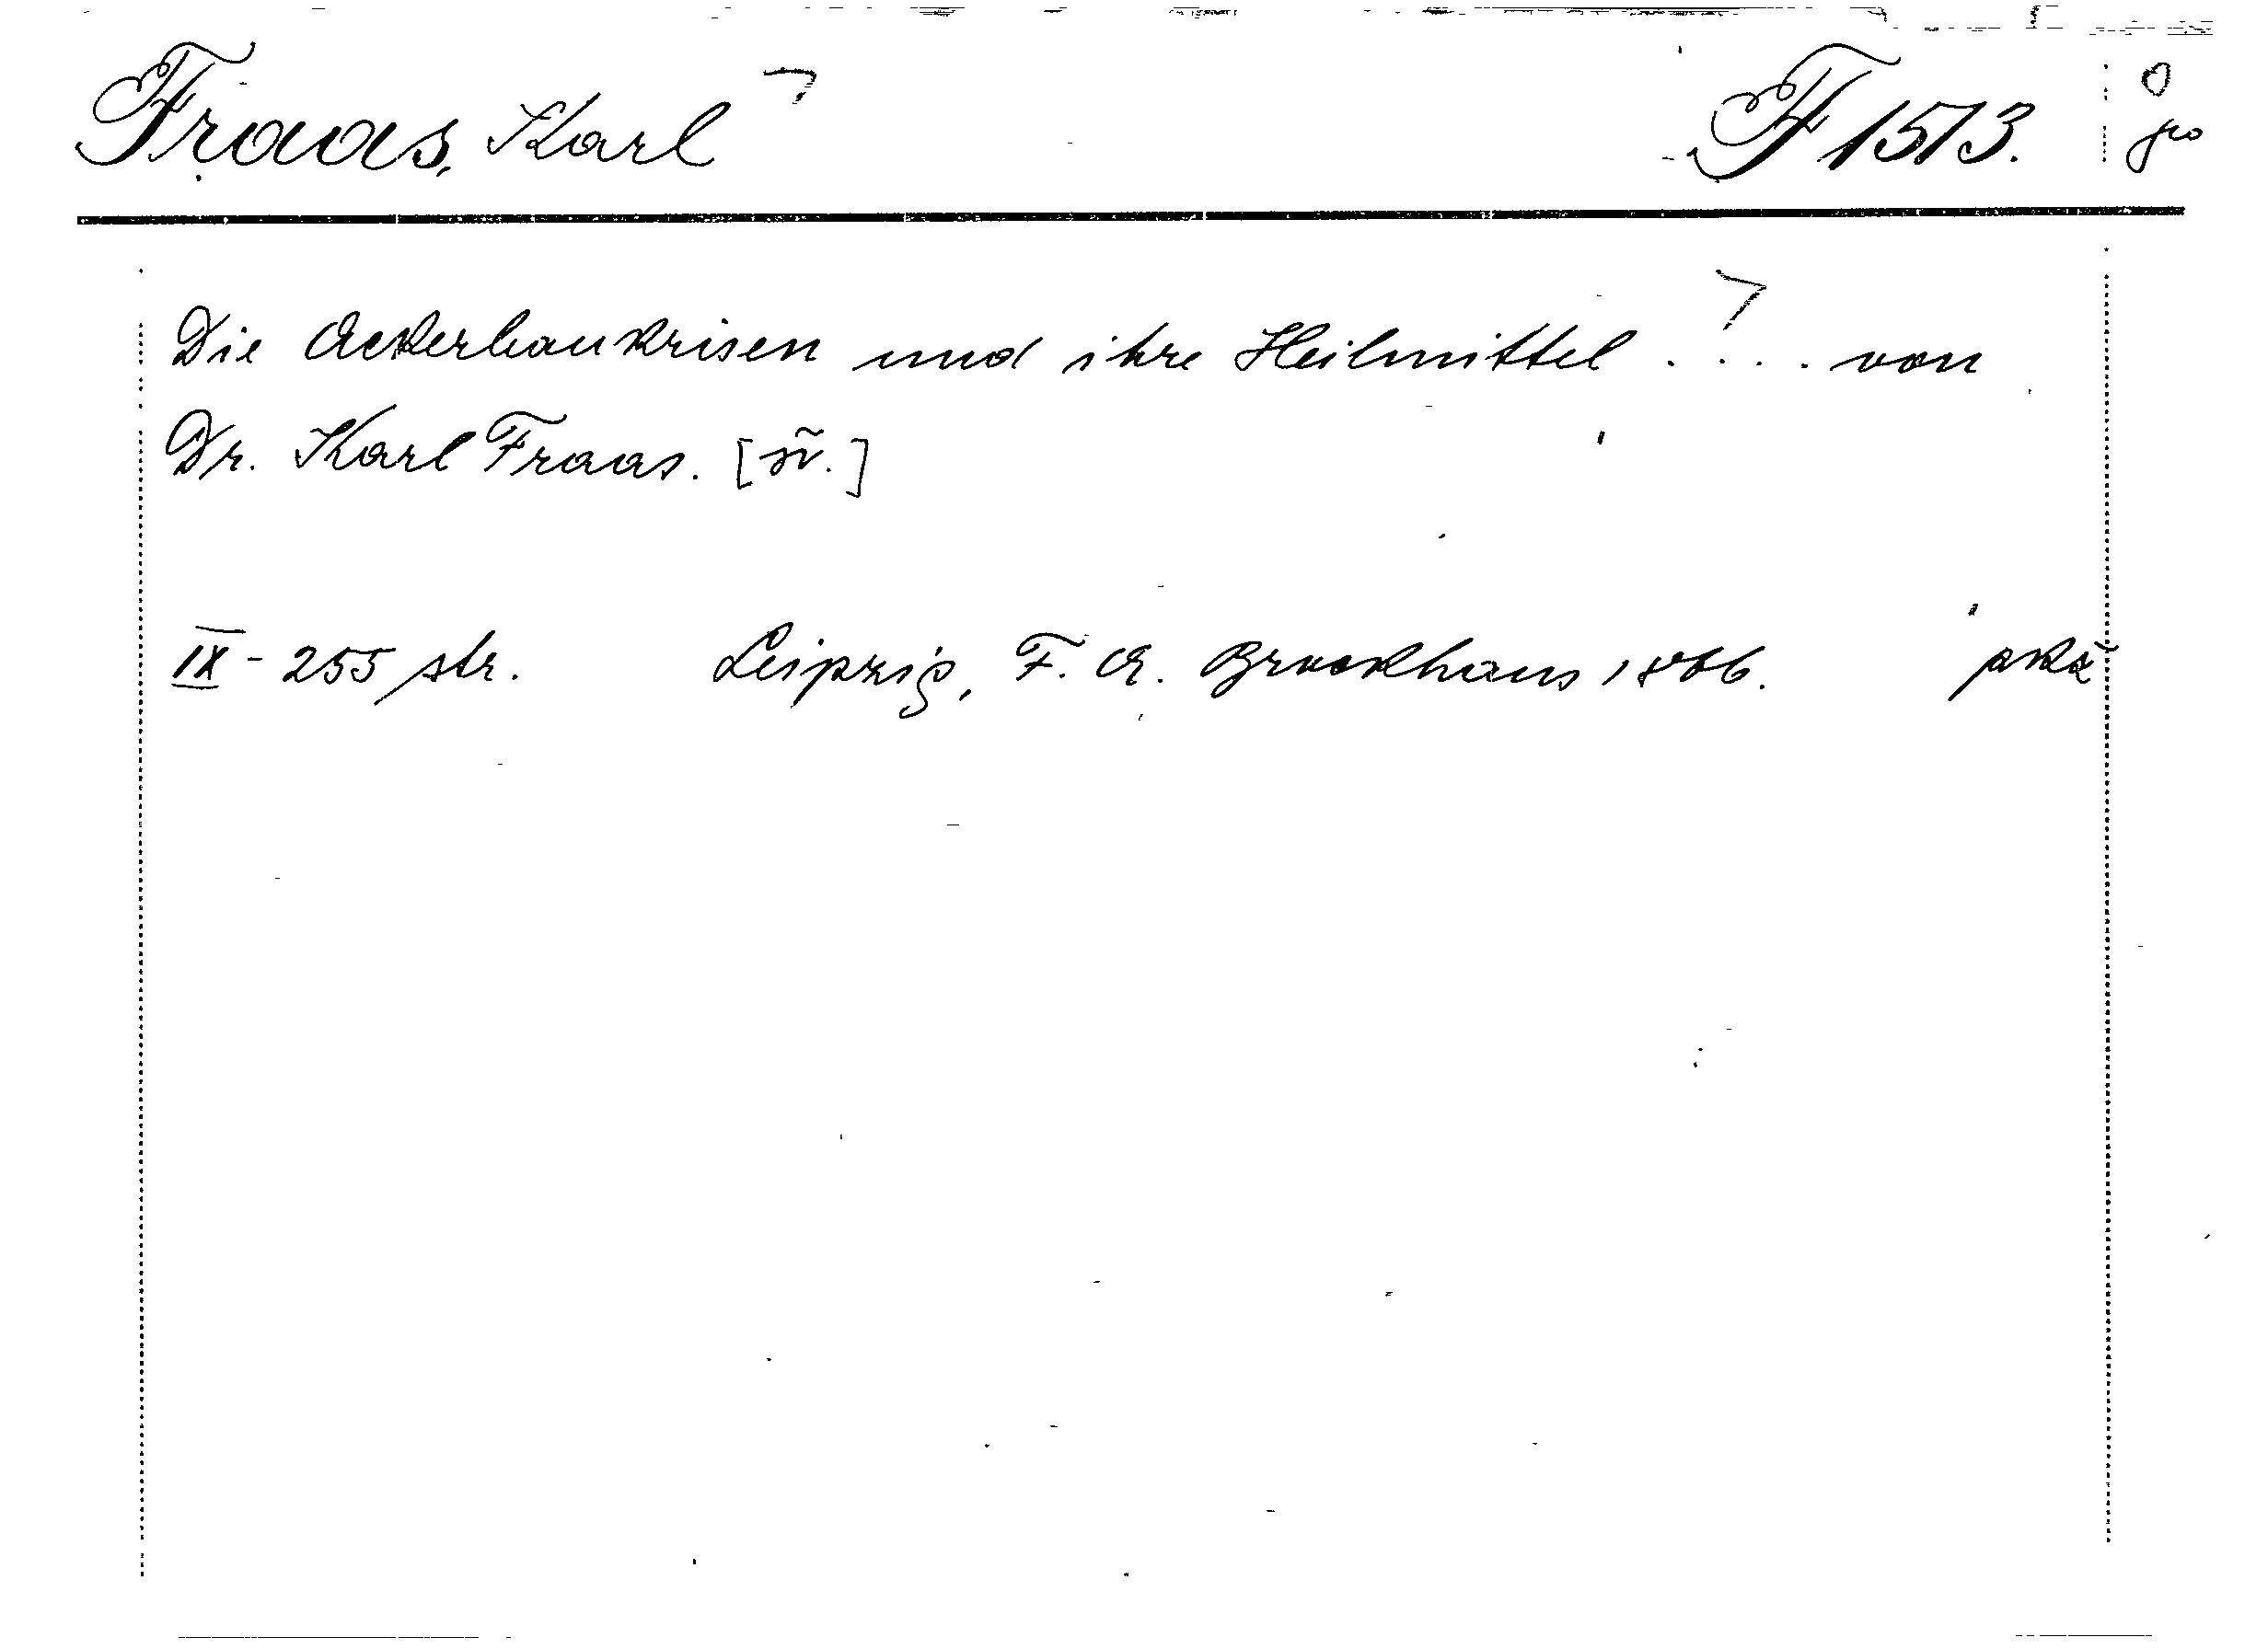 Fraas, Karl F 1513.
Die Ackerbaukrisen und ihre Heilmittel .... von
Dr. Karl Fraas. [sv.]
IX - 255 str. Leipzig, F. A. Brockhaus 1866.